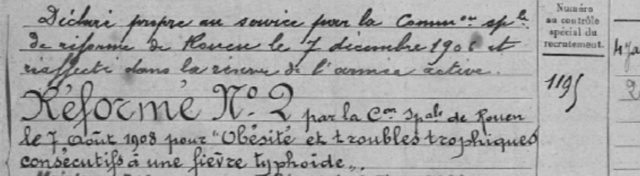 Déclaré propre au service par la Common sple
de réforme de Rouen le 7 décembre 1906 et
réaffecté dans la réserve de l'armée active.
Réformé No. 2 par la Con Spale de Rouen
le 7 Août 1908 pour "Obésité et troubles trophiques
consécutifs à une fièvre typhoïde".
Numéro
au contrôle
spécial du
recrutement.
1195